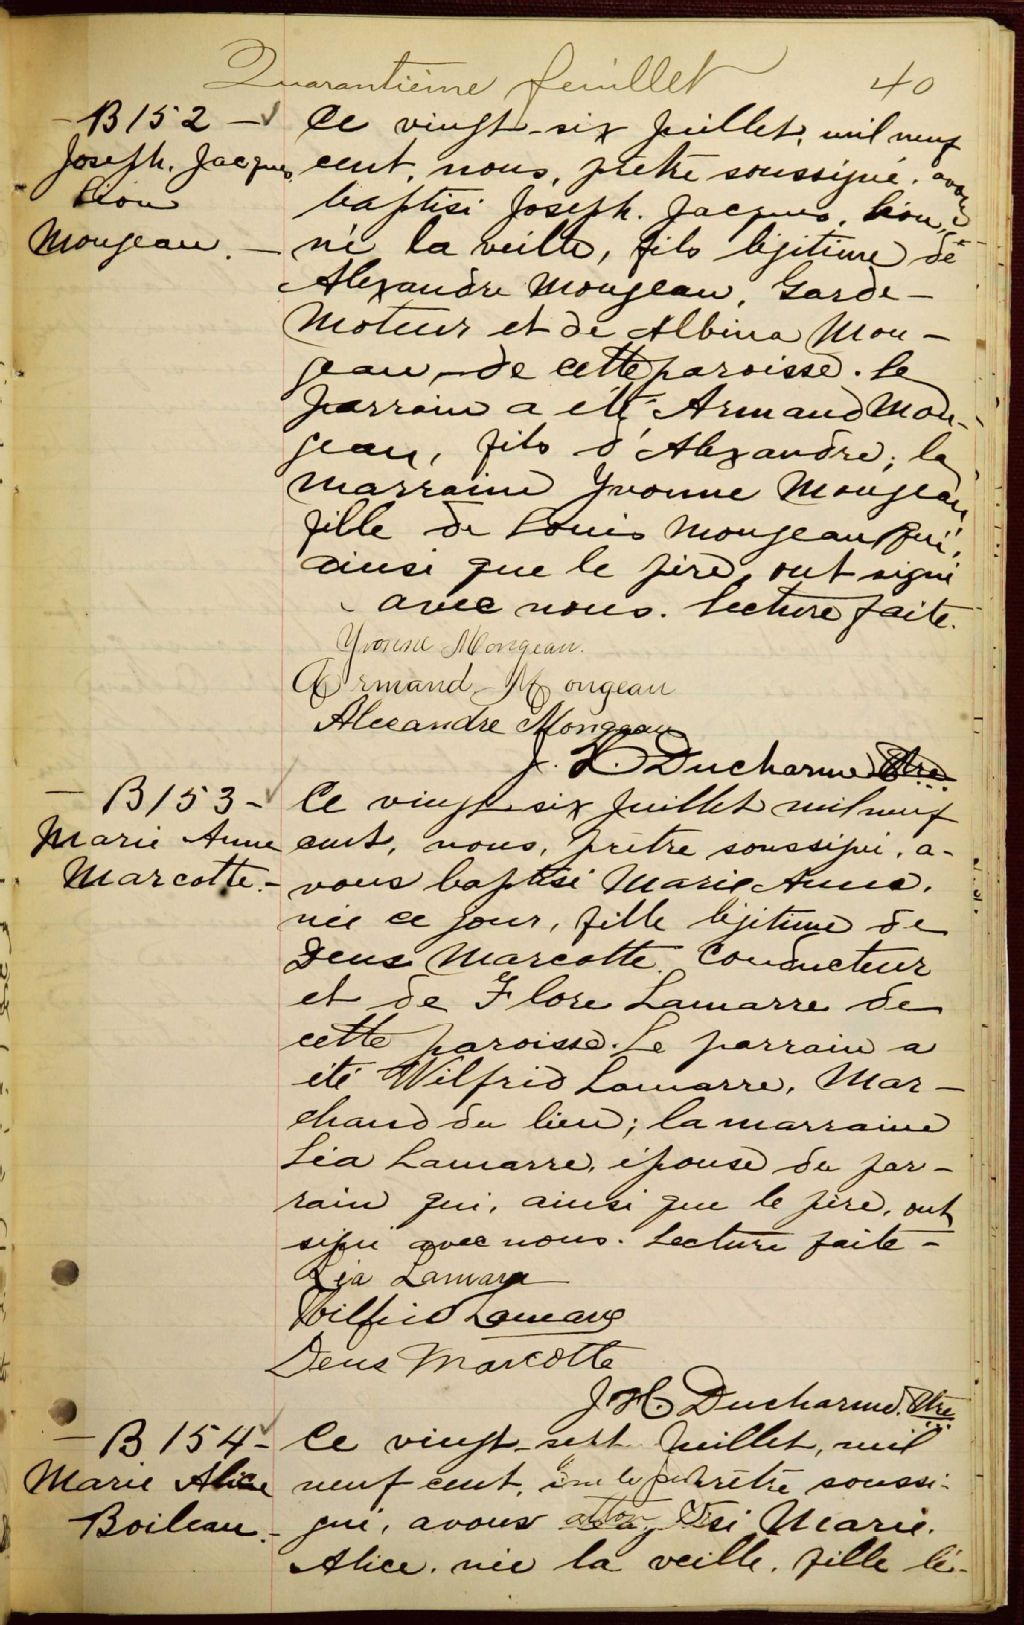 Quarantième feuillet 40
- B 152 -
Joseph. Jacques.
Léon
Mongeau. -
Ce vingt-six Juillet, mil neuf
cent, nous, prêtre soussigné, avons
baptisé Joseph. Jacques. Léon,
né la veille, fils légitime de
Alexandre Mongeau, Garde-
Moteur et de Albina Mon-
geau, de cette paroisse. Le
parrain a été Armand Mon-
geau, fils d'Alexandre; la
marraine Yvonne Mongeau
fille de Louis Mongeau qui,
ainsi que le père, ont signé
avec nous. Lecture faite.
Yvonne Mongeau.
Armand Mongeau
Alexandre Mongeau
J. H. Ducharme Ptre
- B 153 -
Marie Anne
Marcotte. -
Ce vingt-six Juillet mil neuf
cent, nous, prêtre soussigné, a-
vons baptisé Marie Anna,
née ce jour, fille légitime de
Deus Marcotte, Conducteur
et de Flore Lamarre de
cette paroisse. Le parrain a
été Wilfrid Lamarre, Mar-
chand du lieu; la marraine
Léa Lamarre, épouse du par-
rain qui, ainsi que le père, ont
signé avec nous. Lecture faite -
Léa Lamarre
Wilfrid Lamarre
Deus Marcotte
J. H. Ducharme. Ptre
- B 154 -
Marie Alice
Boileau. -
Ce vingt-sept Juillet, mil
neuf cent, prêtre soussi-
gné, avons Marie.
Alice. née la veille, fille lé-